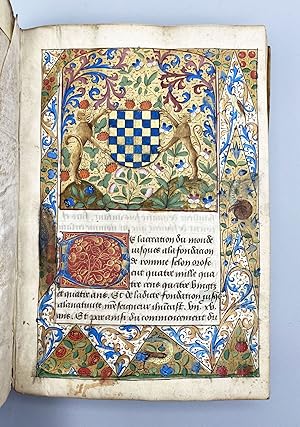 De la creation du monde
jusques a la fondation
de romme selon orose
cent quatre mille qua
tre cens quatre vingtz
et quatre ans. Et de ladicte fondation jusqs
a la nativite nre seigneur ihucrist. vijc xv
ans. Et par ainsi du commencement du